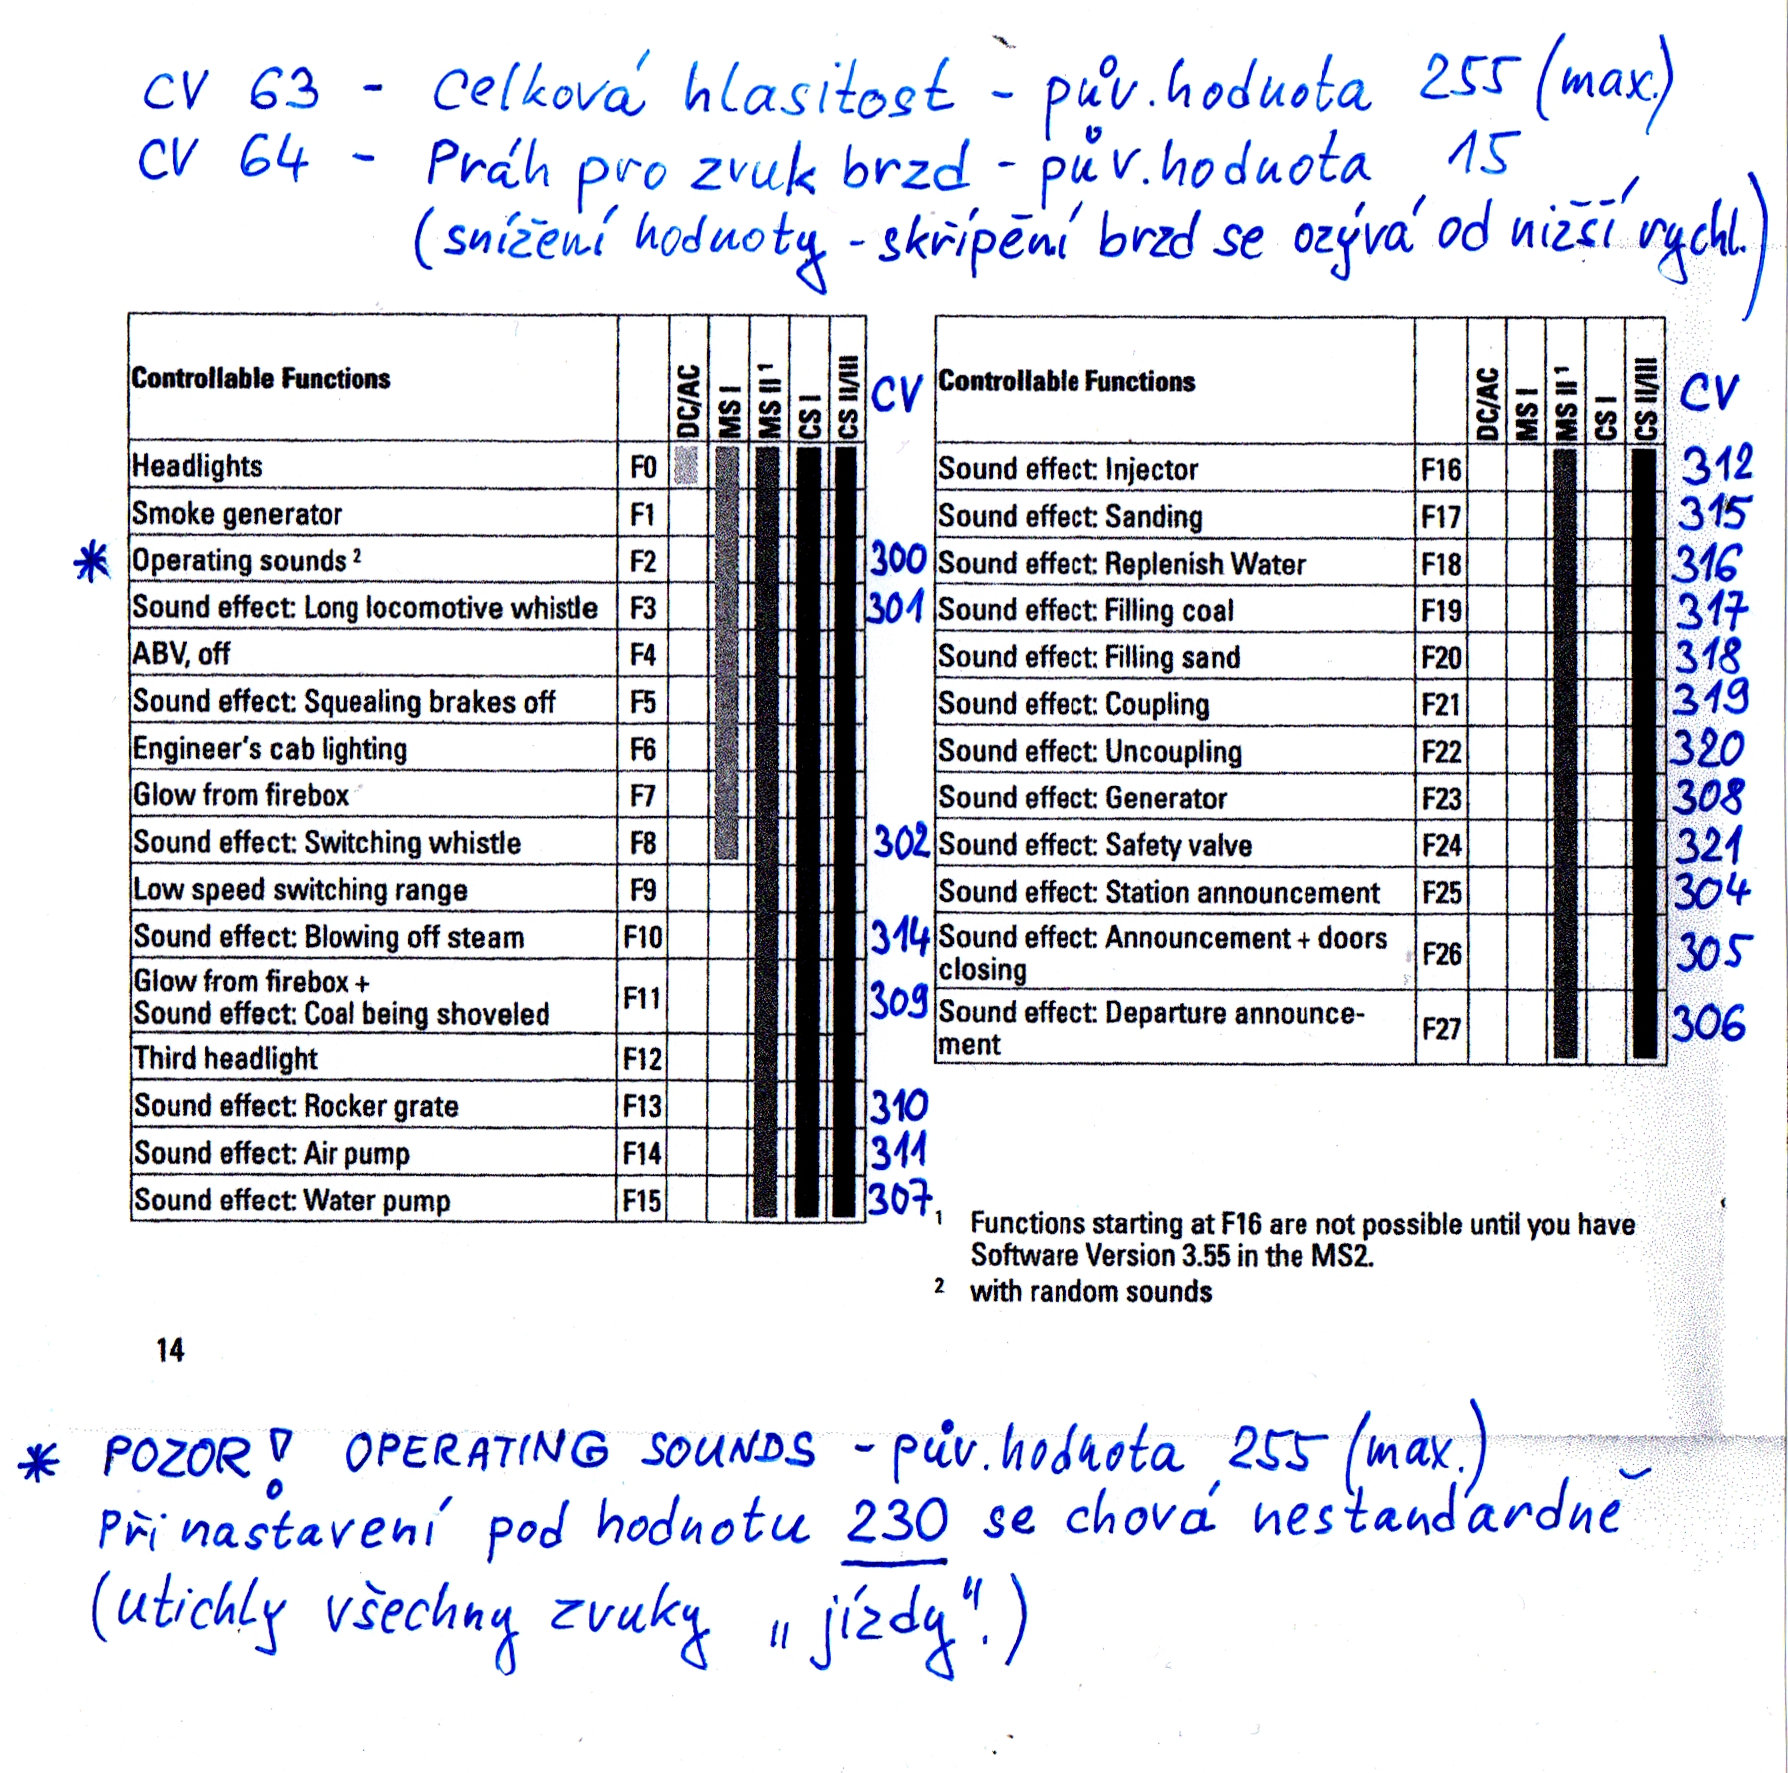 CV 63 - Celková hlasitost - pův. hodnota 255 (max.)
CV 64 - Práh pro zvuk brzd - pův. hodnota 15
(snížení hodnoty - skřípění brzd se ozývá od nižší rychl.)
Controllable Functions DC/AC MS I MS II ¹ CS I CS II/III CV
Headlights F0
Smoke generator F1
* Operating sounds ² F2 300
Sound effect: Long locomotive whistle F3 301
ABV, off F4
Sound effect: Squealing brakes off F5
Engineer's cab lighting F6
Glow from firebox F7
Sound effect: Switching whistle F8 302
Low speed switching range F9
Sound effect: Blowing off steam F10 314
Glow from firebox +
Sound effect: Coal being shoveled F11 309
Third headlight F12
Sound effect: Rocker grate F13 310
Sound effect: Air pump F14 311
Sound effect: Water pump F15 307
Controllable Functions DC/AC MS I MS II ¹ CS I CS II/III CV
Sound effect: Injector F16 312
Sound effect: Sanding F17 315
Sound effect: Replenish Water F18 316
Sound effect: Filling coal F19 317
Sound effect: Filling sand F20 318
Sound effect: Coupling F21 319
Sound effect: Uncoupling F22 320
Sound effect: Generator F23 308
Sound effect: Safety valve F24 321
Sound effect: Station announcement F25 304
Sound effect: Announcement + doors
closing F26 305
Sound effect: Departure announce-
ment F27 306
¹ Functions starting at F16 are not possible until you have
Software Version 3.55 in the MS2.
² with random sounds
14
* POZOR! OPERATING SOUNDS - pův. hodnota 255 (max.)
Při nastavení pod hodnotu 230 se chová nestandardně
(utichly všechny zvuky „jízdy".)